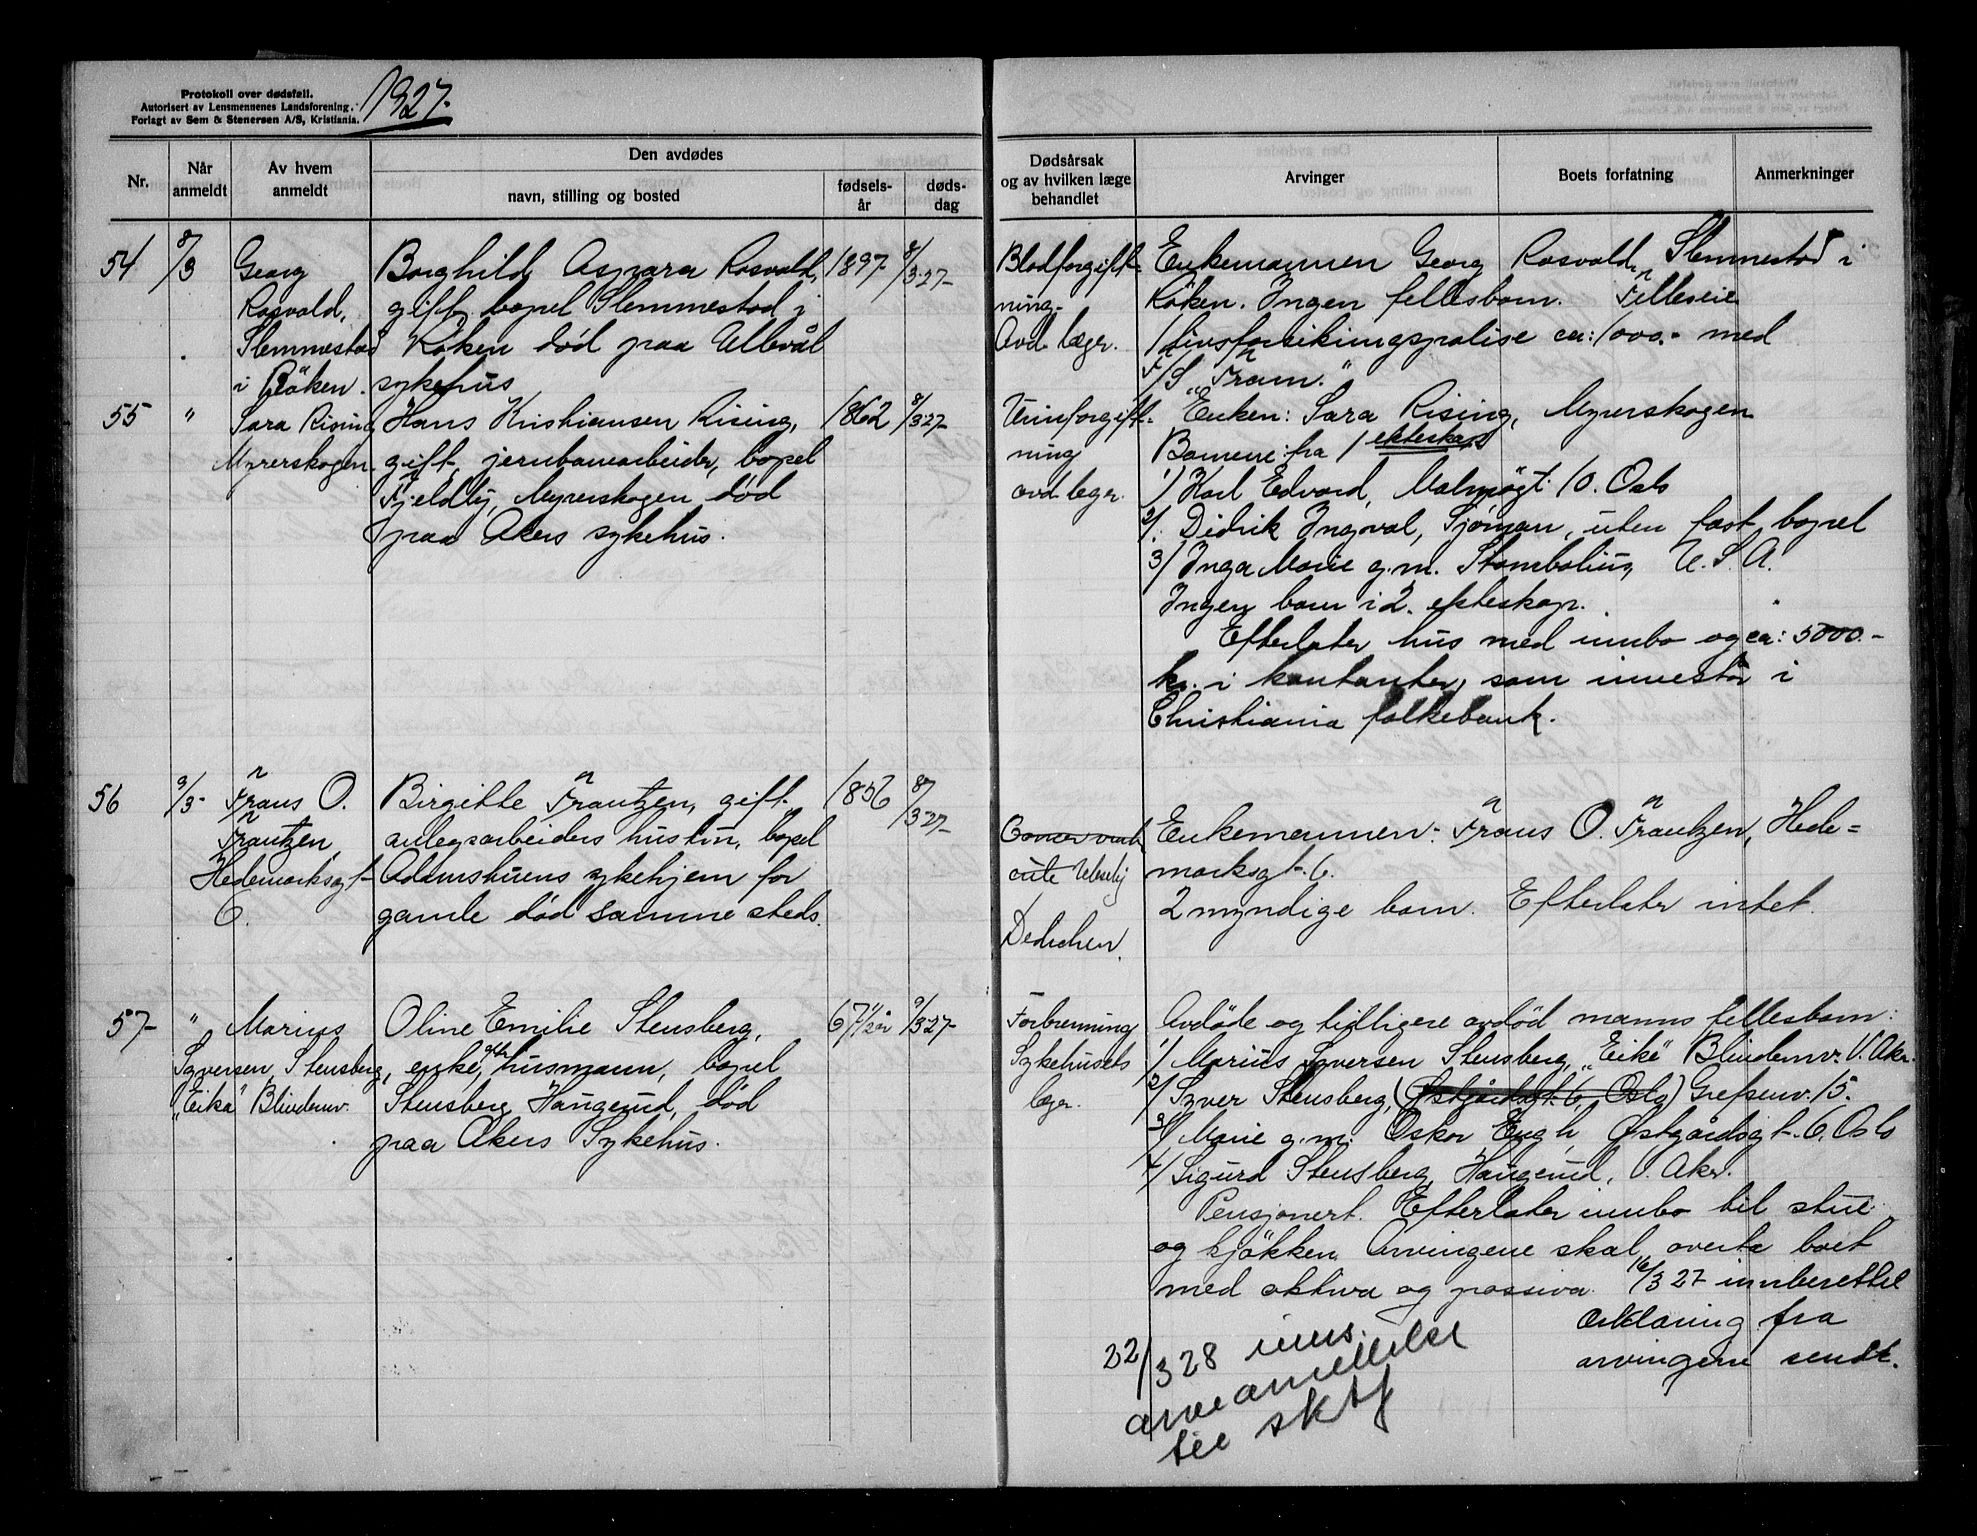 Protokoll over dødsfall.
Autorisert av Lensmennenes Landsforening.
Forlagt av Sem & Stenersen A/S, Kristiania.
1927.
Nr.
Når anmeldt
Av hvem anmeldt
Den avdødes
navn, stilling og bosted
fødsels-år
døds-dag
Dødsårsak
og av hvilken læge
behandlet
Arvinger
Boets forfatning
Anmerkninger
54
8/3
Georg
Rosvold,
Slemmestad
i Röken.
Borghild Rosvold,
gift, bopel Slemmestad i
Röken död paa Ullevål
sykehus
1897
6/3 27
Blodforgift-
ning.
Avd. læger.
Enkemannen Georg Rosvold, Slemmestad i
Röken. Ingen fellesbarn. Felleseie
1 livsforsikringspolise ca: 1000.- med
F/S "Fram."
55
"
Sara Rising
Myrerskogen
Hans Kristiansen Rising,
gift, jernbanearbeider, bopel
Fjeldby, Myrerskogen död
paa Akers sykehus.
1862
8/3 27
Urinforgift-
ning
avd. leger.
Enken: Sara Rising, Myrerskogen
Barnene fra 1 ekteskap
1) Karl Edvard, Malmøgt. 10. Oslo
2/. Didrik Ingval, Sjöman, uten fast bopel
3) Inga Marie g.m. U. S. A.
Ingen barn i 2. ekteskap.
Efterlater hus med innbo og ca: 5000.-
kr. i kontanter, som innestår i
Christiania folkebank.
56
9/3
Frans O.
Frantzen
Hedemarksgt
6.
Birgitte Frantzen, gift
anlegsarbeiders hustru, bopel
Adamstuens sykehjem for
gamle död samme steds.
1856
8/3 27
Dedichen.
Enkemannen: Frans O. Frantzen, Hede=
marksgt. 6.
2 myndige barn. Efterlater intet.
57
"
Marius
Syversen Stensberg,
"Eika" Blindernv.
Oline Emilie Stensberg,
enke efter husmann, bopel
Stensberg Haugerud, död
paa Akers Sykehus.
67 1/2 år
9/3 27
Forbrenning
Sykehusets
læger.
Avdöde og tidligere avdöd manns fellesbarn:
1/ Marius Syversen Stensberg, "Eika" Blindernv. V. Akr.
2/ Syver Stensberg, (Østgårdsgt. 6, Oslo) Grefsenv. 15.
3/ Marie g.m. Oskar Engh, Østgårdsgt. 6, Oslo
4/ Sigurd Stensberg, Haugerud, Ö. Aker.
Pensjonert. Efterlater innbo til stue
og kjökken. Arvingene skal overta boet
med aktiva og passiva. 16/3 27 innberettet
erklæring fra
arvingene sendt.
22/3 28 inns.
arveanmeldelse
til skif